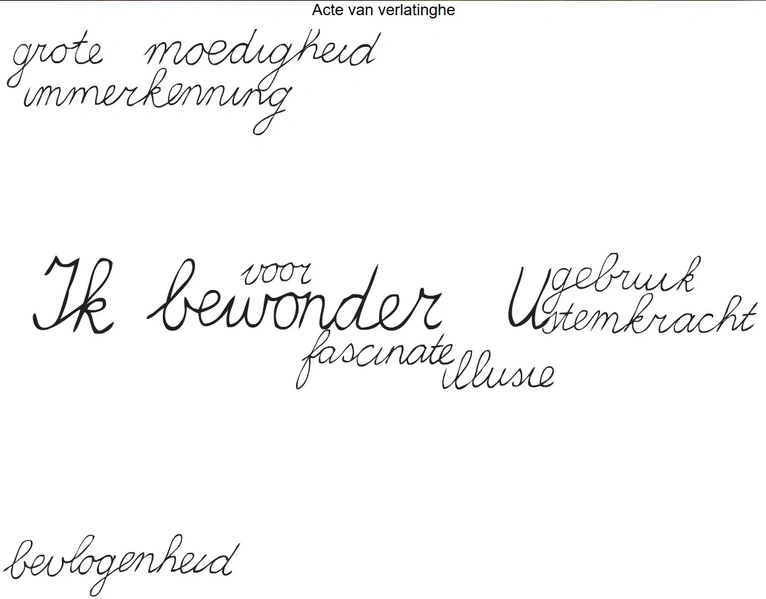 Acte van verlatinghe
grote moedigheid
immerkenning
voor
Ik bewonder U
gebruik
stemkracht
fascinate
illusie
bevlogenheid